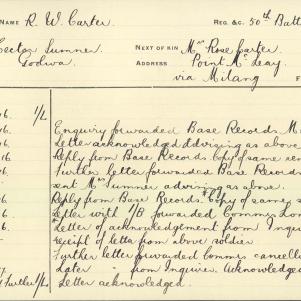 NAME R. W. Carter. REG. &C. 50th Batt
Hector Sumner NEXT OF KIN Mrs Rose Carter.
Lodwa. ADDRESS Point McLeay.
via Milang F
6. 1/L Enquiry forwarded Base Records M
6. Letter acknowledged advising as above
16 Reply from Base Records copy of same sen
16 Further letter forwarded Base Records
sent Mrs Sumner advising as above.
16. Reply from Base Records & Copy of same s
6. Letter with 1/3 forwarded Comms Lon
6. Letter of acknowledgement from Inqui
receipt of letter from above soldier
Further letter forwarded Comms. cancelli
later from Inquirer. Acknowledge
Further 1/L Letter acknowledged.